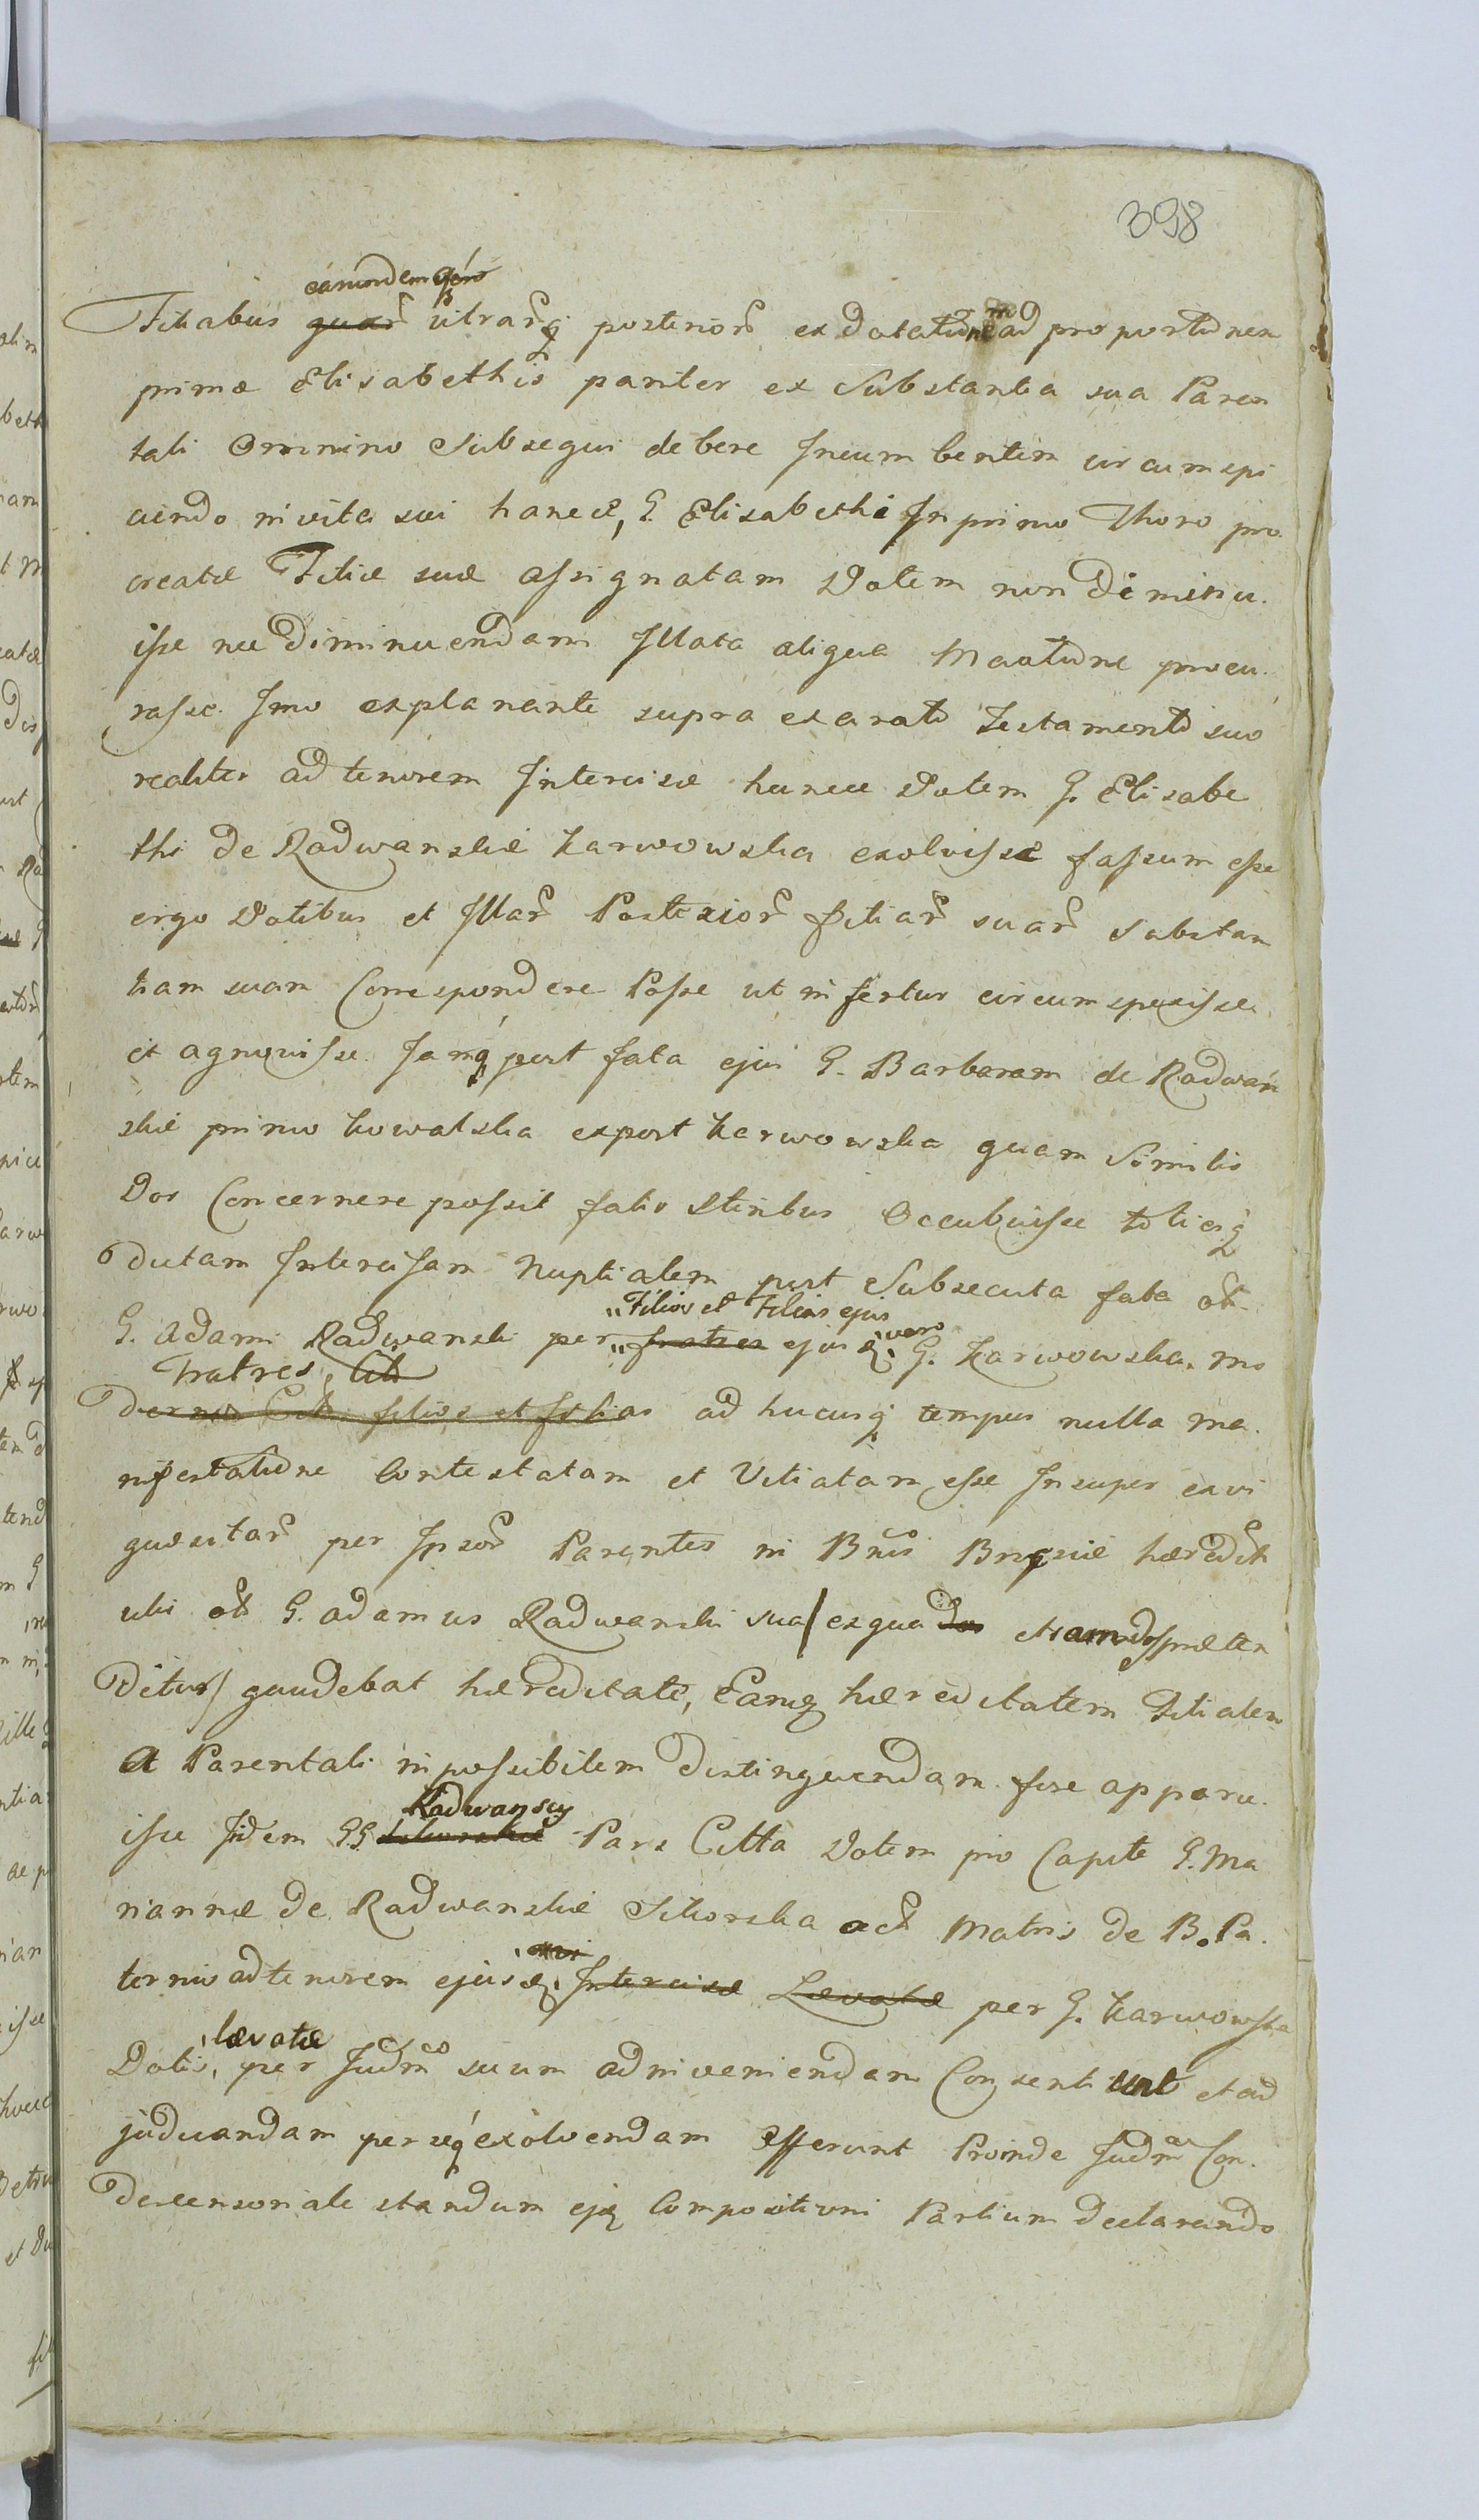 398
earumdem
Filiabus utrarq posterior ex dotatione ad proportionem
primæ Elisabethis pariter ex Substantia sua Paren
tali Omnino Subsequi debere Incumbentem circumspi
ciendo in vita sui hancce, G. Elisabethæ In primo Thoro pro
creatæ Filiæ suæ assignatam Dotem non diminu.
isse nec diminuendam Illata aliqua procu.
rasse. Imo explanante supra exarato Testamento suo
realiter ad tenorem Intercisæ huncce Dotem G. Elisabe
thi de Radwanskie Karwowska exolvisse fassum esse
ergo Dotibus et Illar Posterior Filiar suar Substan
tiam suam Correspondere Posse ut infertur circumspexisse
et agnovisse. Jamq post fata ejus G. Barbaram de Radwan
skie primo Kowalska expost Karwowska quam Similis
Dos Concernere possit fatis Sterilibus Occubuisse toticsq
dictam Intercisam Nuptialem post Subsecuta fata olim
Filios et Filias ejus
G. Adami Radwanski per fratres ejus G. vero G. Karwowska, mo
Fratres
dernos filios et filias ad hucusq tempus nulla ma.
nifestatione Contestatam et Vitiatam esse Insuper exvi
quæsitar per Ipsor Parentes in Bnis hæredit
ubi ol G. Adamus Radwanski sua / ex qua etiam dos præten
ditur / gaudebat hæreditate, Eamq hæreditatem Filialem
A Parentali inpossibilem distinguendam fore apparu.
Radwanscy
isse Iidem GG Pars Citta Dotem pro Capite G. Ma
riannæ de Radwanskie Sikorska act Matris de B. Pa.
ternis ad tenorem ejus Intercisæ Levatæ per G. Karwowska
lævatæ
Dotis, per Judm suum adinveniendam Consentiunt et ad
judicandam per seq exolvendam Offerunt Proinde Judm Con.
descensoriale standum ejq Compositioni Partium declarando